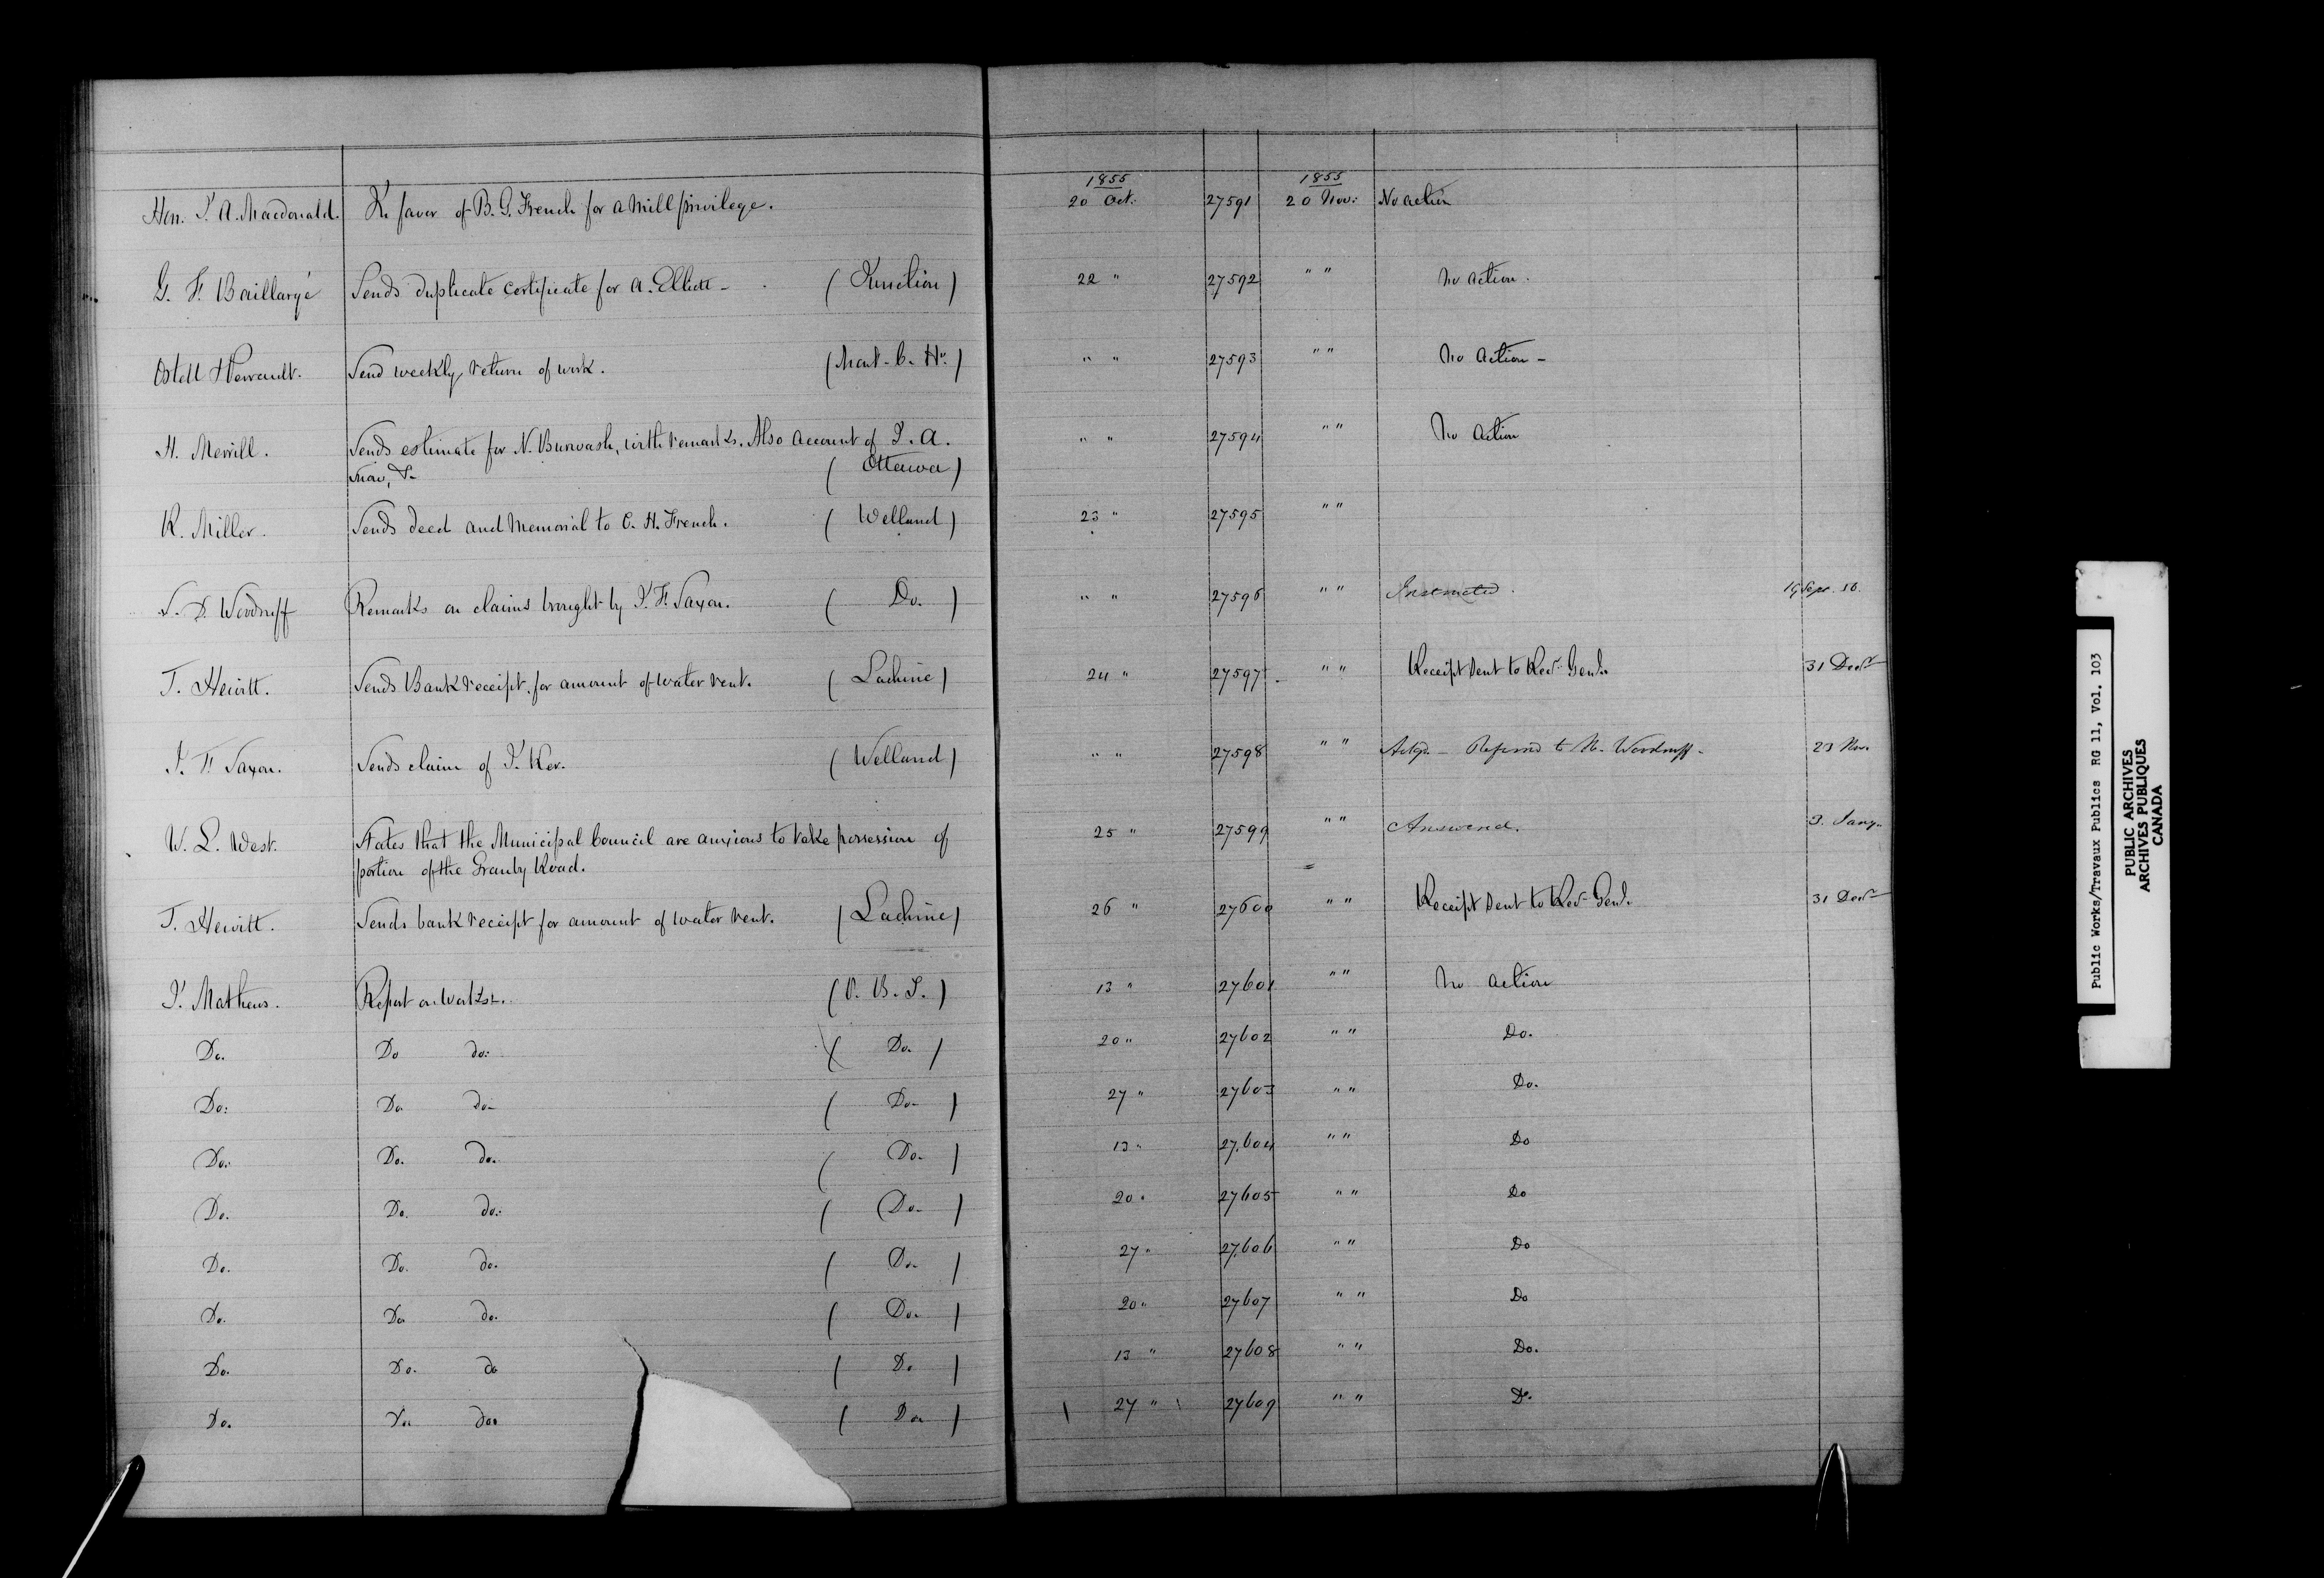 1855 1855
Hon. J. A. Macdonald. In favor of B. G. French for a Mill privilege. 20 Oct. 27591 20 Nov: No action
G. F. Baillargé Sends duplicate certificate for A. Elliott - (Junction) 22 " 27592 " " No action.
Ostell & Perrault. Send weekly return of work. (Mont. C. Ho.) " " 27593 " " No action -
H. Merrill. Sends estimate for N. Burwash, with remarks. Also account of J. A. " " 27594 " " No action
Snow, &c (Ottawa)
R. Miller. Sends deed and Memorial to C. H. French. (Welland) 23 " 27595 " "
S. D. Woodruff Remarks on claims brought by J. F. Saxon. (Do.) " " 27596 " " Instructed. 19 Sept. 56.
T. Hewitt. Sends Bank receipt, for amount of water rent. (Lachine) 24 " 27597 " " Receipt sent to Recr. Genl. 31 Decr
J. F. Saxon. Sends claim of J. Ker. (Welland) " " 27598 " " Ackgd. - Referred to Mr. Woodruff - 23 Nov.
W. L. West. States that the Municipal Council are anxious to take possession of 25 " 27599 " " Answered. 3. Jany.
portion of the Granby Road.
T. Hewitt. Sends bank receipt for amount of water rent. (Lachine) 26 " 27600 " " Receipt sent to Recr Genl. 31 Decr
J. Mathews. Report on Works. (O. B. S.) 13 " 27601 " " No action
Do. Do do: (Do.) 20 " 27602 " " Do.
Do: Do do- (Do-) 27 " 27603 " " Do.
Do. Do. do. (Do-) 13 " 27.604 " " Do
Do. Do. do: (Do-) 20 " 27605 " " Do
Do. Do. do. (Do-) 27 " 27.606 " " Do
Do. Do do. (Do-) 20 " 27607 " " Do
Do. Do. do (Do) 13 " 27608 " " Do.
Do. Do do (Do) 27 " 27609 " " Do.
Public Works/Travaux Publics RG 11, Vol. 103
PUBLIC ARCHIVES
ARCHIVES PUBLIQUES
CANADA